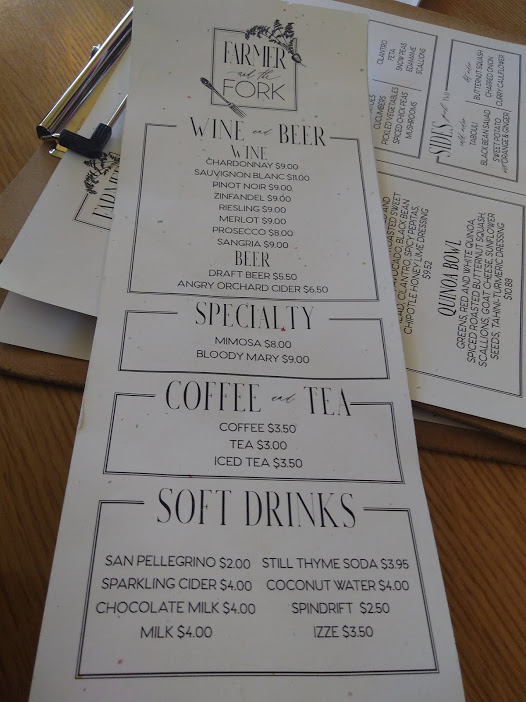 FARMER
and the
FORK
WINE and BEER
WINE
CHARDONNAY $9.00
SAUVIGNON BLANC $11.00
PINOT NOIR $9.00
ZINFANDEL $9.00
RIESLING $9.00
MERLOT $9.00
PROSECCO $8.00
SANGRIA $9.00
BEER
DRAFT BEER $5.50
ANGRY ORCHARD CIDER $6.50
SPECIALTY
MIMOSA $8.00
BLOODY MARY $9.00
COFFEE and TEA
COFFEE $3.50
TEA $3.00
ICED TEA $3.50
SOFT DRINKS
SAN PELLEGRINO $2.00 STILL THYME SODA $3.95
SPARKLING CIDER $4.00 COCONUT WATER $4.00
CHOCOLATE MILK $4.00 SPINDRIFT $2.50
MILK $4.00 IZZE $3.50
CUCUMBERS
PICKLED VEGETABLES
SPICED CHICK PEAS
MUSHROOMS
CILANTRO
FETA
SNOW PEAS
EDAMAME
SCALLIONS
SIDES
TABOULI
BLACK BEAN SALAD
SWEET POTATO
ORANGE & GINGER
BUTTERNUT SQUASH
CHARRED ONION
CURRY CAULIFLOWER
ROASTED SWEET
AVOCADO, BLACK BEAN
CILANTRO, SPICY PEPITAS,
CHIPOTLE HONEY LIME DRESSING
$9.52
QUINOA BOWL
GREENS, RED AND WHITE QUINOA,
SPICED ROASTED BUTTERNUT SQUASH,
SCALLIONS, GOAT CHEESE, SUNFLOWER
SEEDS, TAHINI-TURMERIC DRESSING
$10.88
FARMER